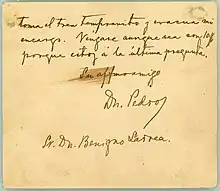 toma el tren tempranito y evacua mi
encargo. Vengase aunque sea con 10$
porque estoy á la última pregunta.
Su affmo amigo
Dn. Pedro
Sr. Dn. Benigno Larrea.